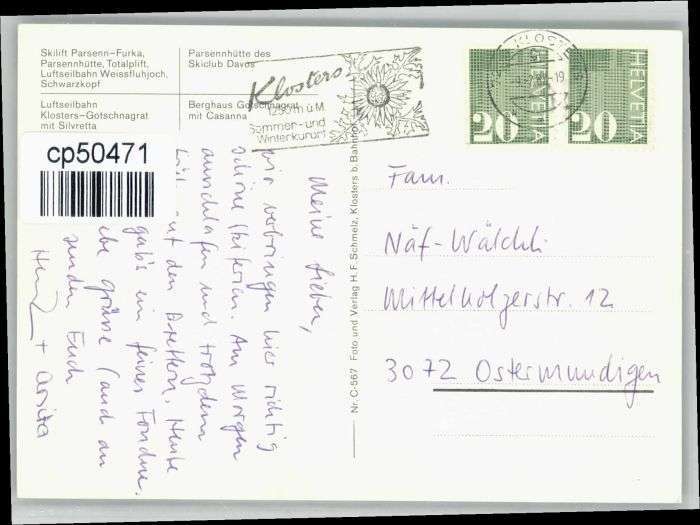 Skilift Parsenn-Furka,
Parsennhütte, Totalplift,
Luftseilbahn Weissfluhjoch,
Schwarzkopf
Parsennhütte des
Skiclub Davos
Luftseilbahn
Klosters-Gotschnagrat
mit Silvretta
Berghaus Gotschnagrat
mit Casanna
Klosters
1250 m ü M
Sommer- und
Winterkurort
KLOSTERS
HELVETIA
20
HELVETIA
20
cp50471
Meine Lieben,
wir verbringen hier richtig
schöne Skiferien. Am Morgen
ausschlafen und trotzdem
auf den Brettern. Heute
gab's ein feines Fondue.
grüsse (auch an
senden Euch
+ Anita
Nr. C-567 Foto und Verlag H. F. Schmelz, Klosters b. Bahnhof
Fam.
Näf-Wälchli
Mittelholzerstr. 12
3072 Ostermundigen